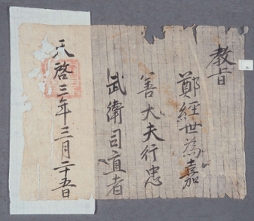 教旨
鄭經世為嘉
善大夫行忠
武衛司直者
天啓三年三月二十五日